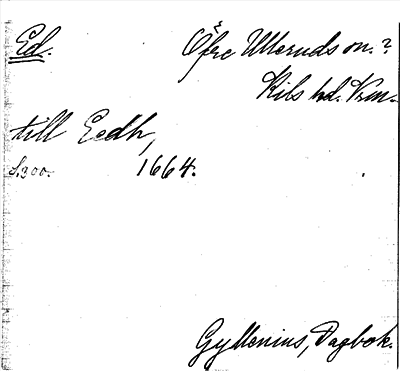 Ed. Öfre Ulleruds sn.?
Kils hd. Vrm.
till Eedh,
S.200. 1664.
Gyllenius, Dagbok.